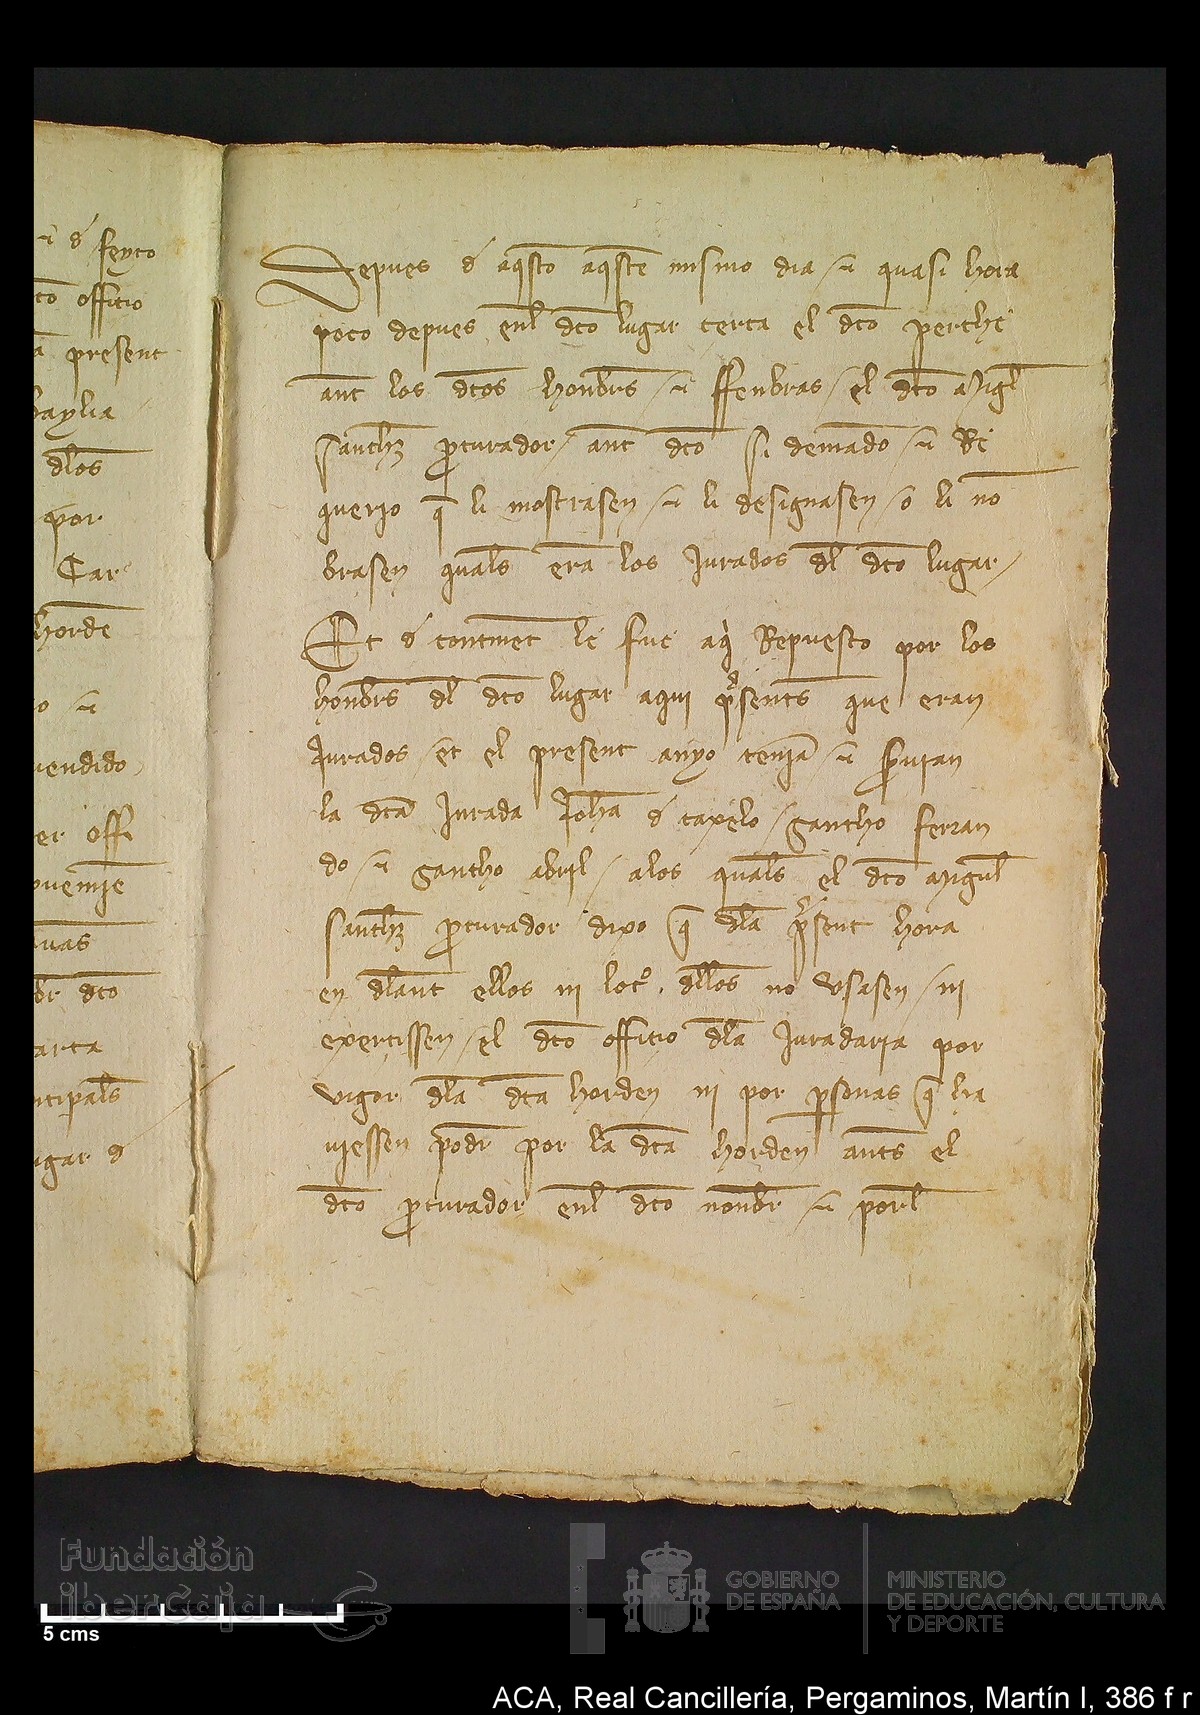 ⁊ d feyto
cto officio
a present
baylia
dlos
por
Car
horde
o ⁊
uendido
er offi
ouemje
uas
br dcto
arta
ncipals
ugar d
Depues d aqsto aqste mismo dia ⁊ quasi hora
poco depues enl dcto lugar cerca el dcto perche
ant los dctos honbrs ⁊ ffenbras el dcto Migl
Sanchz procurador ant dcto si demado ⁊ Re
querjo q li mostrasen ⁊ li designasen o li no
brasen quals era los Jurados dl dcto lugar
Et d continent le fue aq Repuesto por los
honbrs dl dcto lugar aqui presents que eran
Jurados et el present anyo tenja ⁊ seruian
la dcta Jurada Joha d capelo Sancho ferran
do ⁊ Sancho abril alos quals el dcto Miguel
Sanchz procurador dixo q dla present hora
en dlant ellos ni loct dllos no vsasen nj
exercissen el dcto officio dla Juradaria por
vigor dla dcta horden nj por personas q ha
ujessen podr por la dcta horden ants el
dcto procurador enl dcto nonbr ⁊ porl
Fundación
ibercaja
5 cms
GOBIERNO
DE ESPAÑA
MINISTERIO
DE EDUCACIÓN, CULTURA
Y DEPORTE
ACA, Real Cancillería, Pergaminos, Martín I, 386 f r